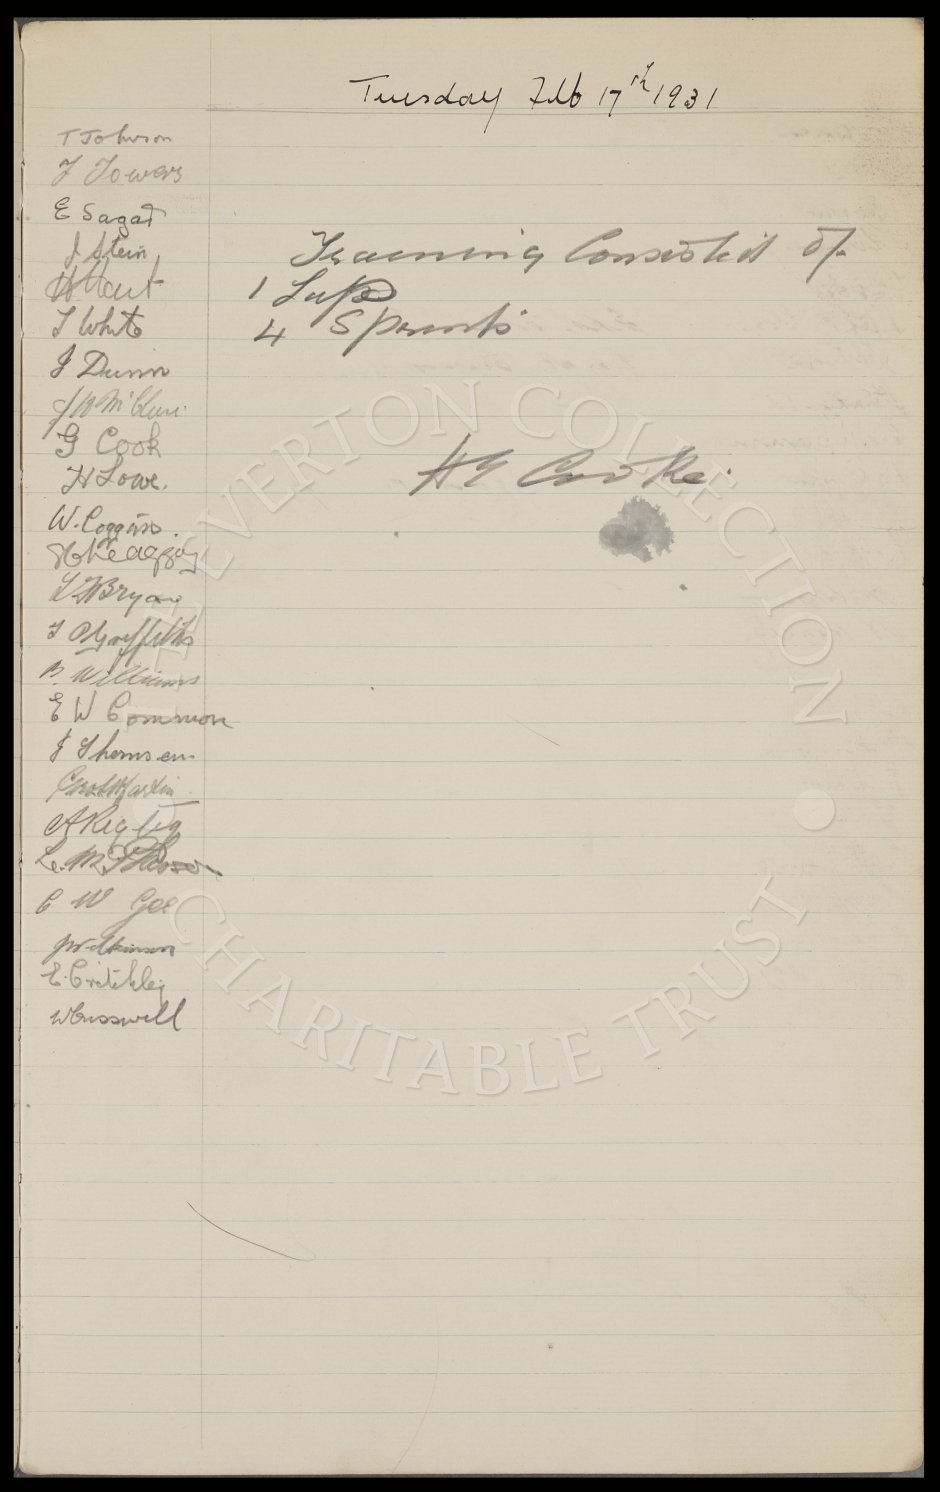 Tuesday Feb 17th 1931
T Johnson
J Towers
E Sagar
J Stein
H Hart
T White
J Dunn
J W McClure
G Cook
H Lowe.
W. Coggins.
L F Bryan
T P Griffiths
B. Williams
E W Common
J Thomson
Geo Martin
A Rigby
C W Gee
J Wilkinson
E. Critchley
W Cresswell
Training Consisted Of
1 Lap
4 Spruints
H E Cooke.
THE EVERTON COLLECTION
CHARITABLE TRUST